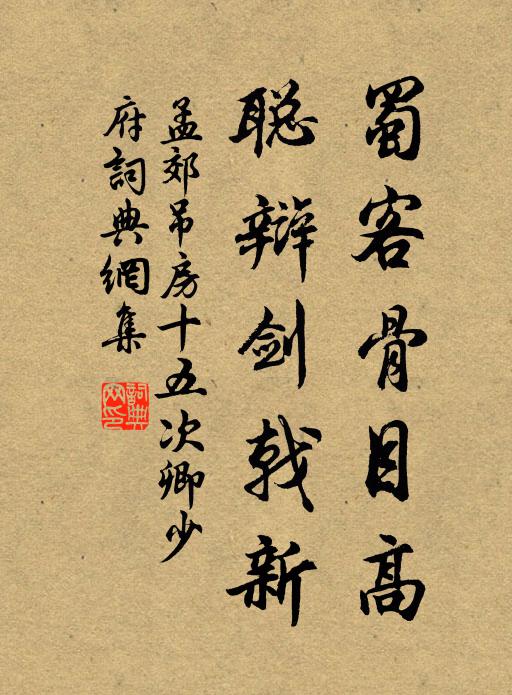 蜀客骨目高
聪辩剑戟新
孟郊吊房十五次卿少
府詞典網集
詞典网印